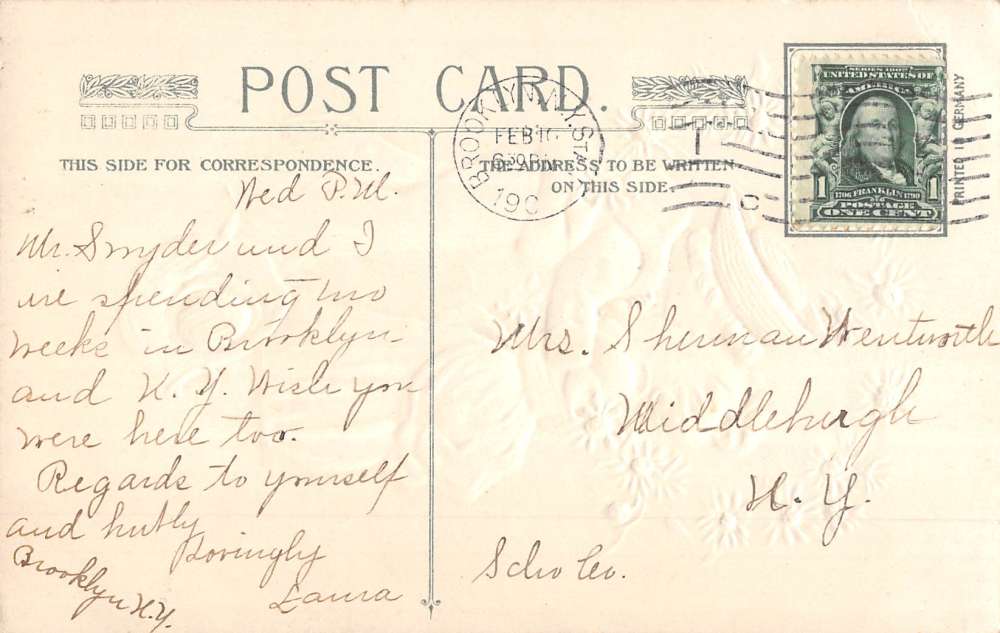 POST CARD.
THIS SIDE FOR CORRESPONDENCE.
THE ADDRESS TO BE WRITTEN
ON THIS SIDE.
BROOKLYN, N.Y. STA.
FEB 16
6 30 PM
190
1
C
SERIES 1902
UNITED STATES OF
AMERICA
1706 FRANKLIN 1790
1 POSTAGE 1
ONE CENT
PRINTED IN GERMANY
Wed P.M.
Mr. Snyder and I
are spending two
weeks in Brooklyn-
and N.Y. Wish you
were here too.
Regards to yourself
and hubby
Lovingly
Laura
Brooklyn N.Y.
Mrs. Sherman Wentworth
Middleburgh
N.Y.
Scho Co.